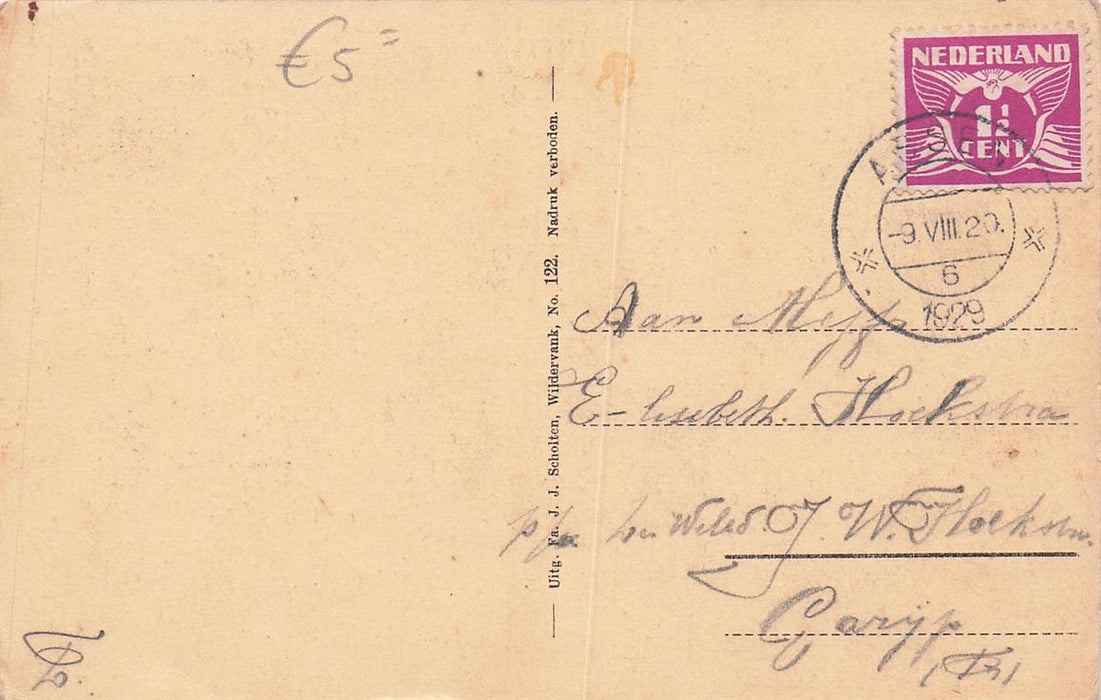 €5=
NEDERLAND
1½
CENT
ASSEN
-9.VIII.20.
6
1929
Uitg. Fa. J. J. Scholten, Wildervank, No. 122. Nadruk verboden.
Aan Mejf
Elisabeth. Hoekstra
p/a Weled. J. W. Hoekstra.
Garijp
(Fr)